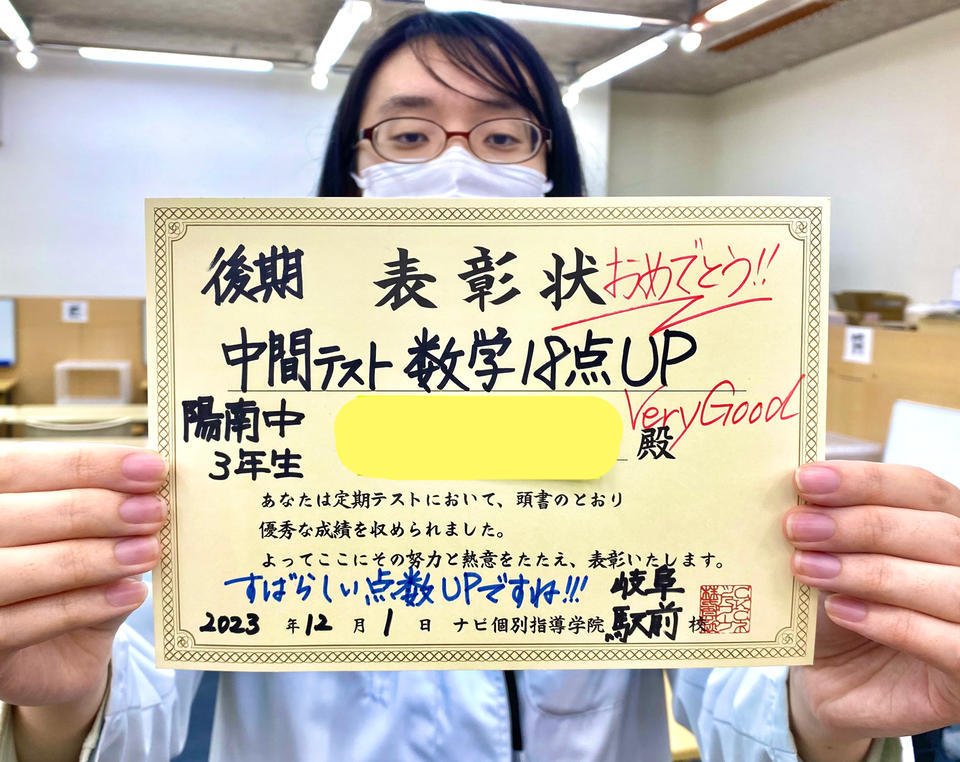 後期 表彰状 おめでとう!!
中間テスト 数学18点UP
Very Good
陽南中
3年生 殿
あなたは定期テストにおいて、頭書のとおり
優秀な成績を収められました。
よってここにその努力と熱意をたたえ、表彰いたします。
すばらしい点数UPですね!!!
岐阜
2023年12月1日 ナビ個別指導学院 駅前 校